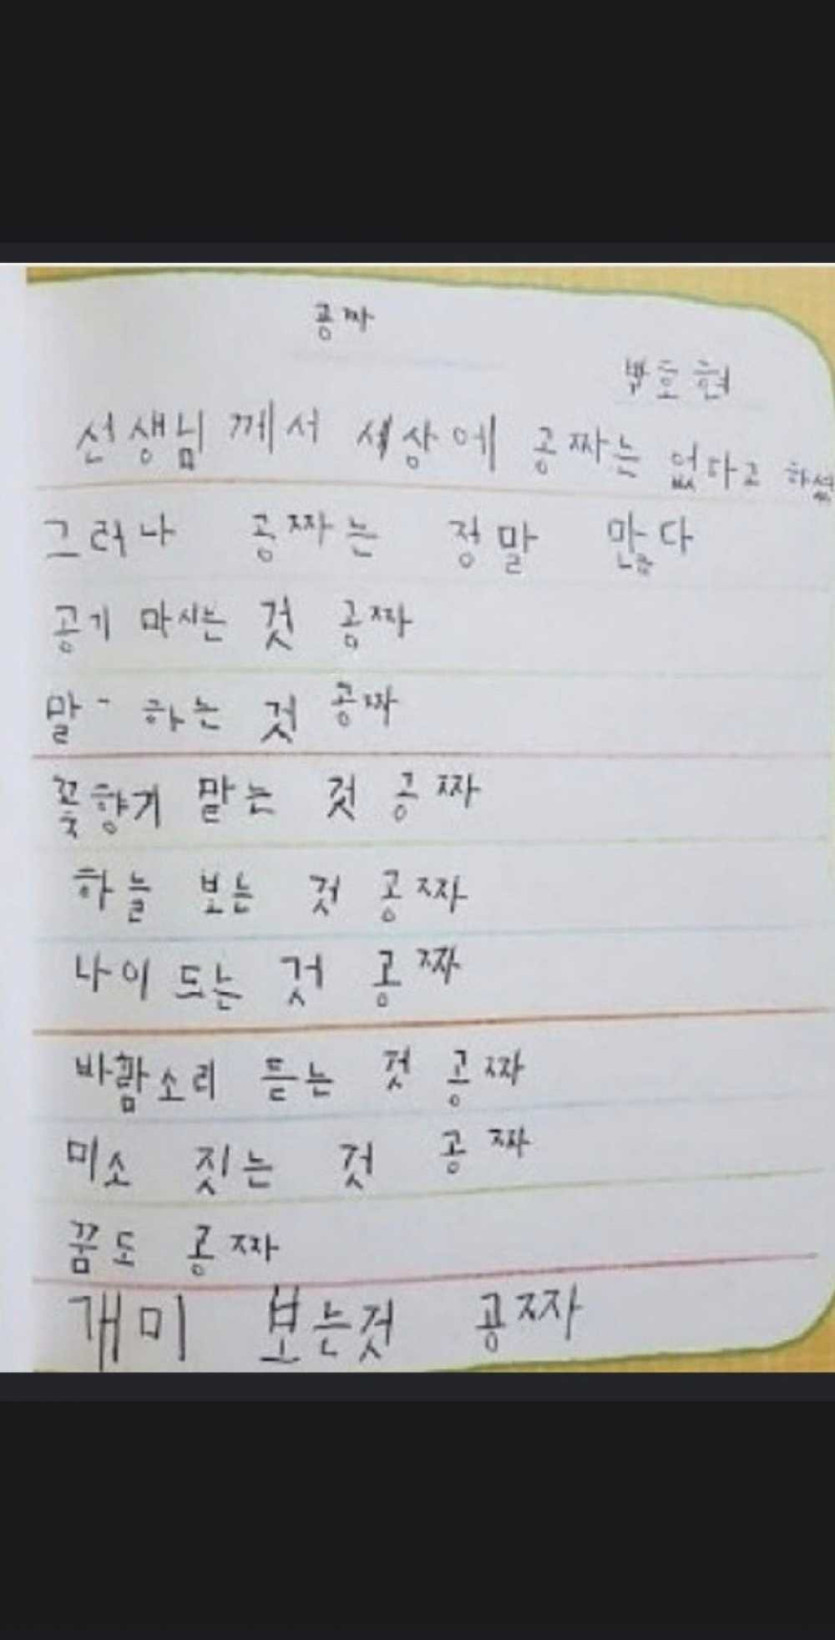 공짜
박호현
선생님 께서 세상에 공짜는 없다고 하셨
그러나 공짜는 정말 많다
공기 마시는 것 공짜
말 하는 것 공짜
꽃향기 맡는 것 공짜
하늘 보는 것 공짜
나이 드는 것 공짜
바람소리 듣는 것 공짜
미소 짓는 것 공짜
꿈도 공짜
개미 보는것 공짜